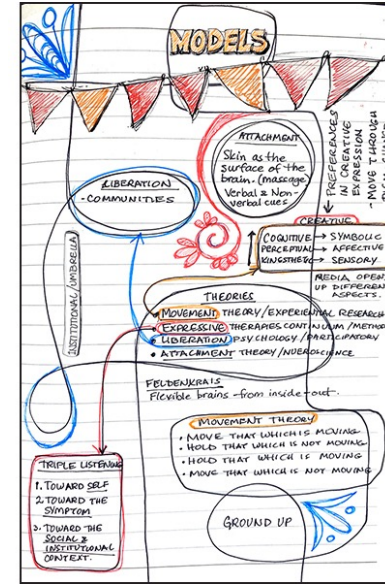 MODELS
ATTACHMENT
Skin as the
surface of the
brain. (massage)
Verbal & Non-
verbal cues
PREFERENCES
IN CREATIVE
EXPRESSION
- MOVE THROUGH
LIBERATION
- COMMUNITIES
CREATIVE
COGNITIVE → SYMBOLIC
PERCEPTUAL → AFFECTIVE
KINESTHETIC → SENSORY
MEDIA OPEN
UP DIFFEREN
ASPECTS.
INSTITUTIONAL/UMBRELLA
THEORIES
• MOVEMENT THEORY/EXPERIENTIAL RESEARCH
• EXPRESSIVE THERAPIES CONTINUUM/METHO
• LIBERATION PSYCHOLOGY/PARTICIPATORY
• ATTACHMENT THEORY/NUEROSCIENCE
FELDENKRAIS
Flexible brains - from inside-out.
MOVEMENT THEORY
• MOVE THAT WHICH IS MOVING
• HOLD THAT WHICH IS NOT MOVING
• HOLD THAT WHICH IS MOVING
• MOVE THAT WHICH IS NOT MOVING
TRIPLE LISTENING
1. TOWARD SELF
2. TOWARD THE
SYMPTOM
3. TOWARD THE
SOCIAL &
INSTITUTIONAL
CONTEXT.
GROUND UP